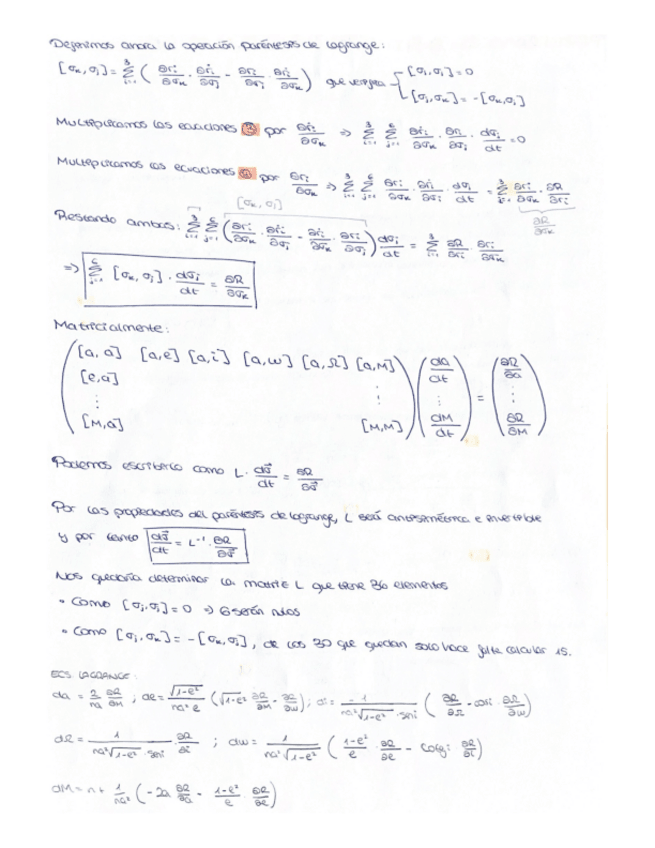 Definimos ahora la operación paréntesis de Lagrange:
[σₖ, σⱼ] = Σ³ᵢ₌₁ ( ∂rᵢ/∂σₖ · ∂ṙᵢ/∂σⱼ - ∂rᵢ/∂σⱼ · ∂ṙᵢ/∂σₖ ) que verifica [σⱼ, σⱼ] = 0
[σⱼ, σₖ] = -[σₖ, σⱼ]
Multiplicamos las ecuaciones por ∂ṙᵢ/∂σₖ => Σ³ᵢ₌₁ Σ⁶ⱼ₌₁ ∂ṙᵢ/∂σₖ · ∂rᵢ/∂σⱼ · dσⱼ/dt = 0
Multiplicamos las ecuaciones por ∂rᵢ/∂σₖ => Σ³ᵢ₌₁ Σ⁶ⱼ₌₁ ∂rᵢ/∂σₖ · ∂ṙᵢ/∂σⱼ · dσⱼ/dt = Σ³ ∂rᵢ/∂σₖ · ∂R/∂rᵢ
[σₖ, σⱼ]
∂R/∂σₖ
Restando ambos: Σ³ᵢ₌₁ Σ⁶ⱼ₌₁ ( ∂rᵢ/∂σₖ · ∂ṙᵢ/∂σⱼ - ∂ṙᵢ/∂σₖ · ∂rᵢ/∂σⱼ ) dσⱼ/dt = Σ³ᵢ₌₁ ∂R/∂rᵢ · ∂rᵢ/∂σₖ
=> Σ⁶ⱼ₌₁ [σₖ, σⱼ] · dσⱼ/dt = ∂R/∂σₖ
Matricialmente:
[a,a] [a,e] [a,i] [a,w] [a,Ω] [a,M] da/dt ∂R/∂a
[e,a] ⋮ ⋮ = ⋮
⋮
[M,a] [M,M] dM/dt ∂R/∂M
Podemos escribirlo como L · dσ⃗/dt = ∂R/∂σ⃗
Por las propiedades del paréntesis de Lagrange, L será antisimétrica e invertible
y por tanto dσ⃗/dt = L⁻¹ · ∂R/∂σ⃗
Nos quedaría determinar la matriz L que tiene 36 elementos
• Como [σⱼ, σⱼ] = 0 => 6 serán nulos
• Como [σⱼ, σₖ] = -[σₖ, σⱼ], de los 30 que quedan solo hace falta calcular 15.
ECS. LAGRANGE:
da = 2/na ∂R/∂M ; de = √(1-e²)/na²e ( √(1-e²) ∂R/∂M - ∂R/∂w ) ; di = -1/(na²√(1-e²) · sin i) ( ∂R/∂Ω - cos i · ∂R/∂w )
dΩ = 1/(na²√(1-e²) · sin i) · ∂R/∂i ; dw = 1/(na²√(1-e²)) ( (1-e²)/e · ∂R/∂e - cotg i · ∂R/∂i )
dM = n + 1/na² ( -2a ∂R/∂a - (1-e²)/e · ∂R/∂e )